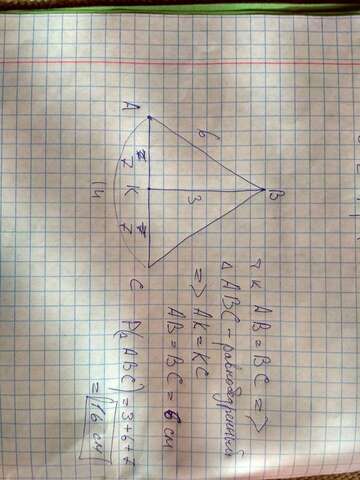 B
6
3
A
7
K
7
C
14
т.к. AB = BC =>
Δ ABC - равнобедренный
=> AK = KC
AB = BC = 6 см
P(Δ ABC) = 3 + 6 + 7
= 16 см